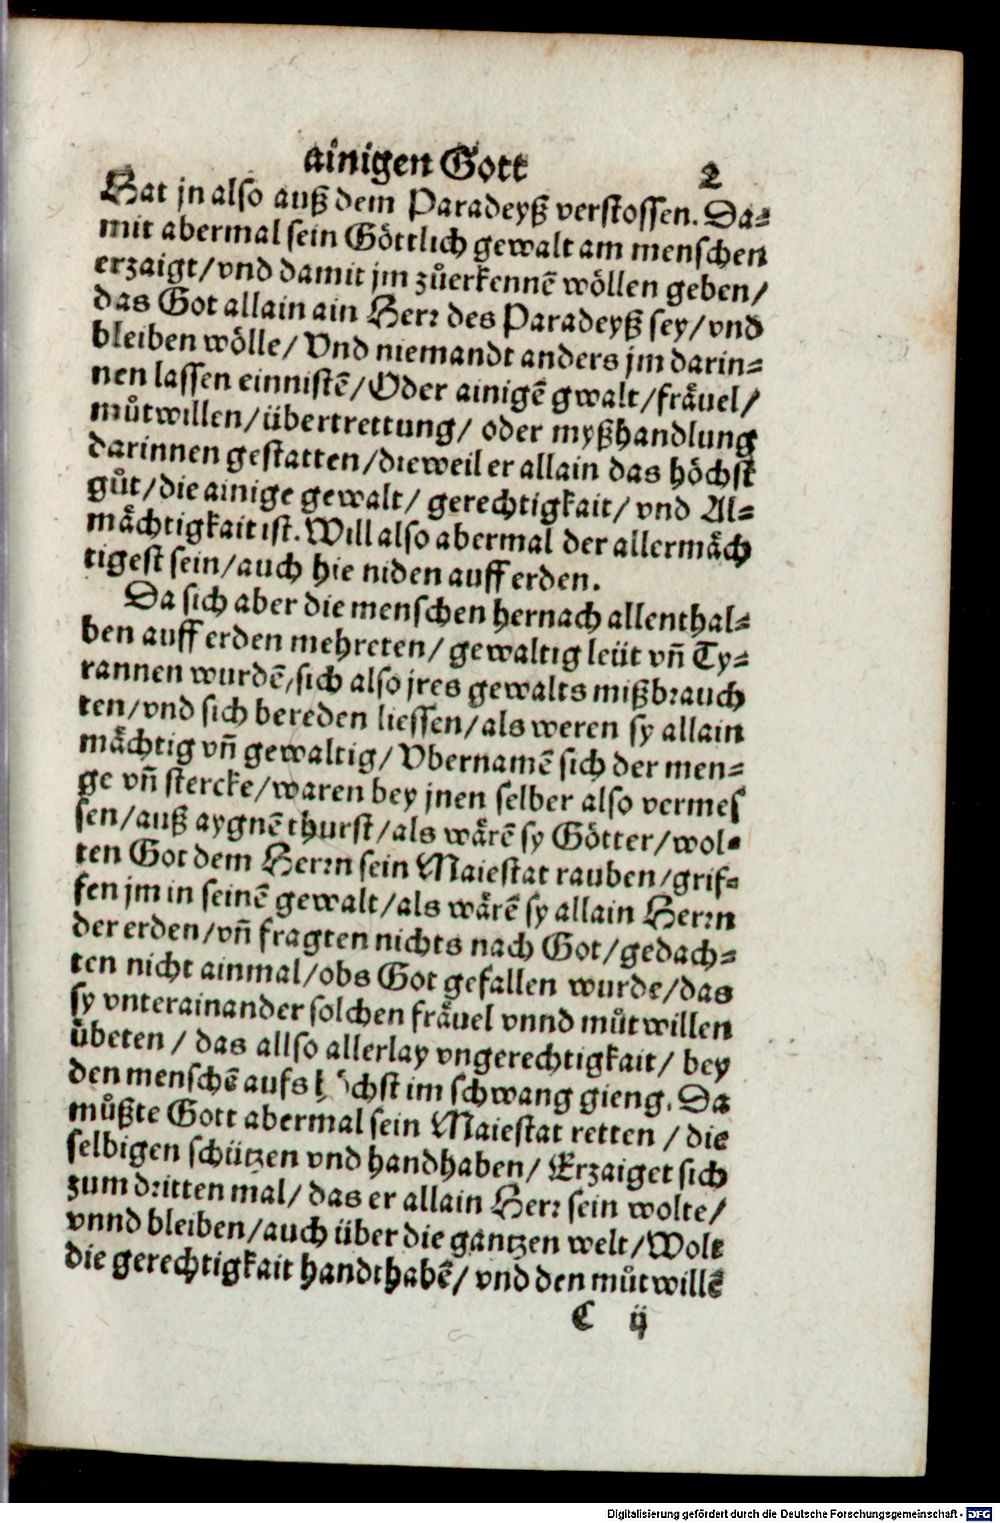 ainigen Gott 2
Hat jn also auß dem Paradeyß verstossen. Da⸗
mit abermal sein Göttlich gewalt am menschen
erzaigt/vnd damit jm zůerkennẽ wöllen geben/
das Got allain ain Herr des Paradeyß sey/vnd
bleiben wölle/ Vnd niemandt anders jm darin⸗
nen lassen einnistẽ/Oder ainigẽ gwalt/fräuel/
můtwillen/übertrettung/ oder myßhandlung
darinnen gestatten/dieweil er allain das höchst
gůt/die ainige gewalt/ gerechtigkait/ vnd Al⸗
mächtigkait ist. Will also abermal der allermäch
tigest sein/auch hie niden auff erden.
Da sich aber die menschen hernach allenthal⸗
ben auff erden mehreten/ gewaltig leüt vñ Ty⸗
rannen wurdẽ/sich also jres gewalts mißbrauch
ten/vnd sich bereden liessen/als weren sy allain
mächtig vñ gewaltig/ Vbernamẽ sich der men⸗
ge vñ stercke/waren bey jnen selber also vermes
sen/auß aygnẽ thurst/als wärẽ sy Götter/wol⸗
ten Got dem Herrn sein Maiestat rauben/grif⸗
fen jm in seinẽ gewalt/als wärẽ sy allain Herrn
der erden/vñ fragten nichts nach Got/gedach⸗
ten nicht ainmal/obs Got gefallen wurde/das
sy vnterainander solchen fräuel vnnd můtwillen
übeten / das allso allerlay vngerechtigkait/ bey
den menschẽ aufs höchst im schwang gieng. Da
můßte Gott abermal sein Maiestat retten / die
selbigen schützen vnd handhaben/ Erzaiget sich
zum dritten mal/ das er allain Herr sein wolte/
vnnd bleiben/auch über die gantzen welt/Wolt
die gerechtigkait handthabẽ/ vnd den můtwillẽ
C ij
Digitalisierung gefördert durch die Deutsche Forschungsgemeinschaft - DFG